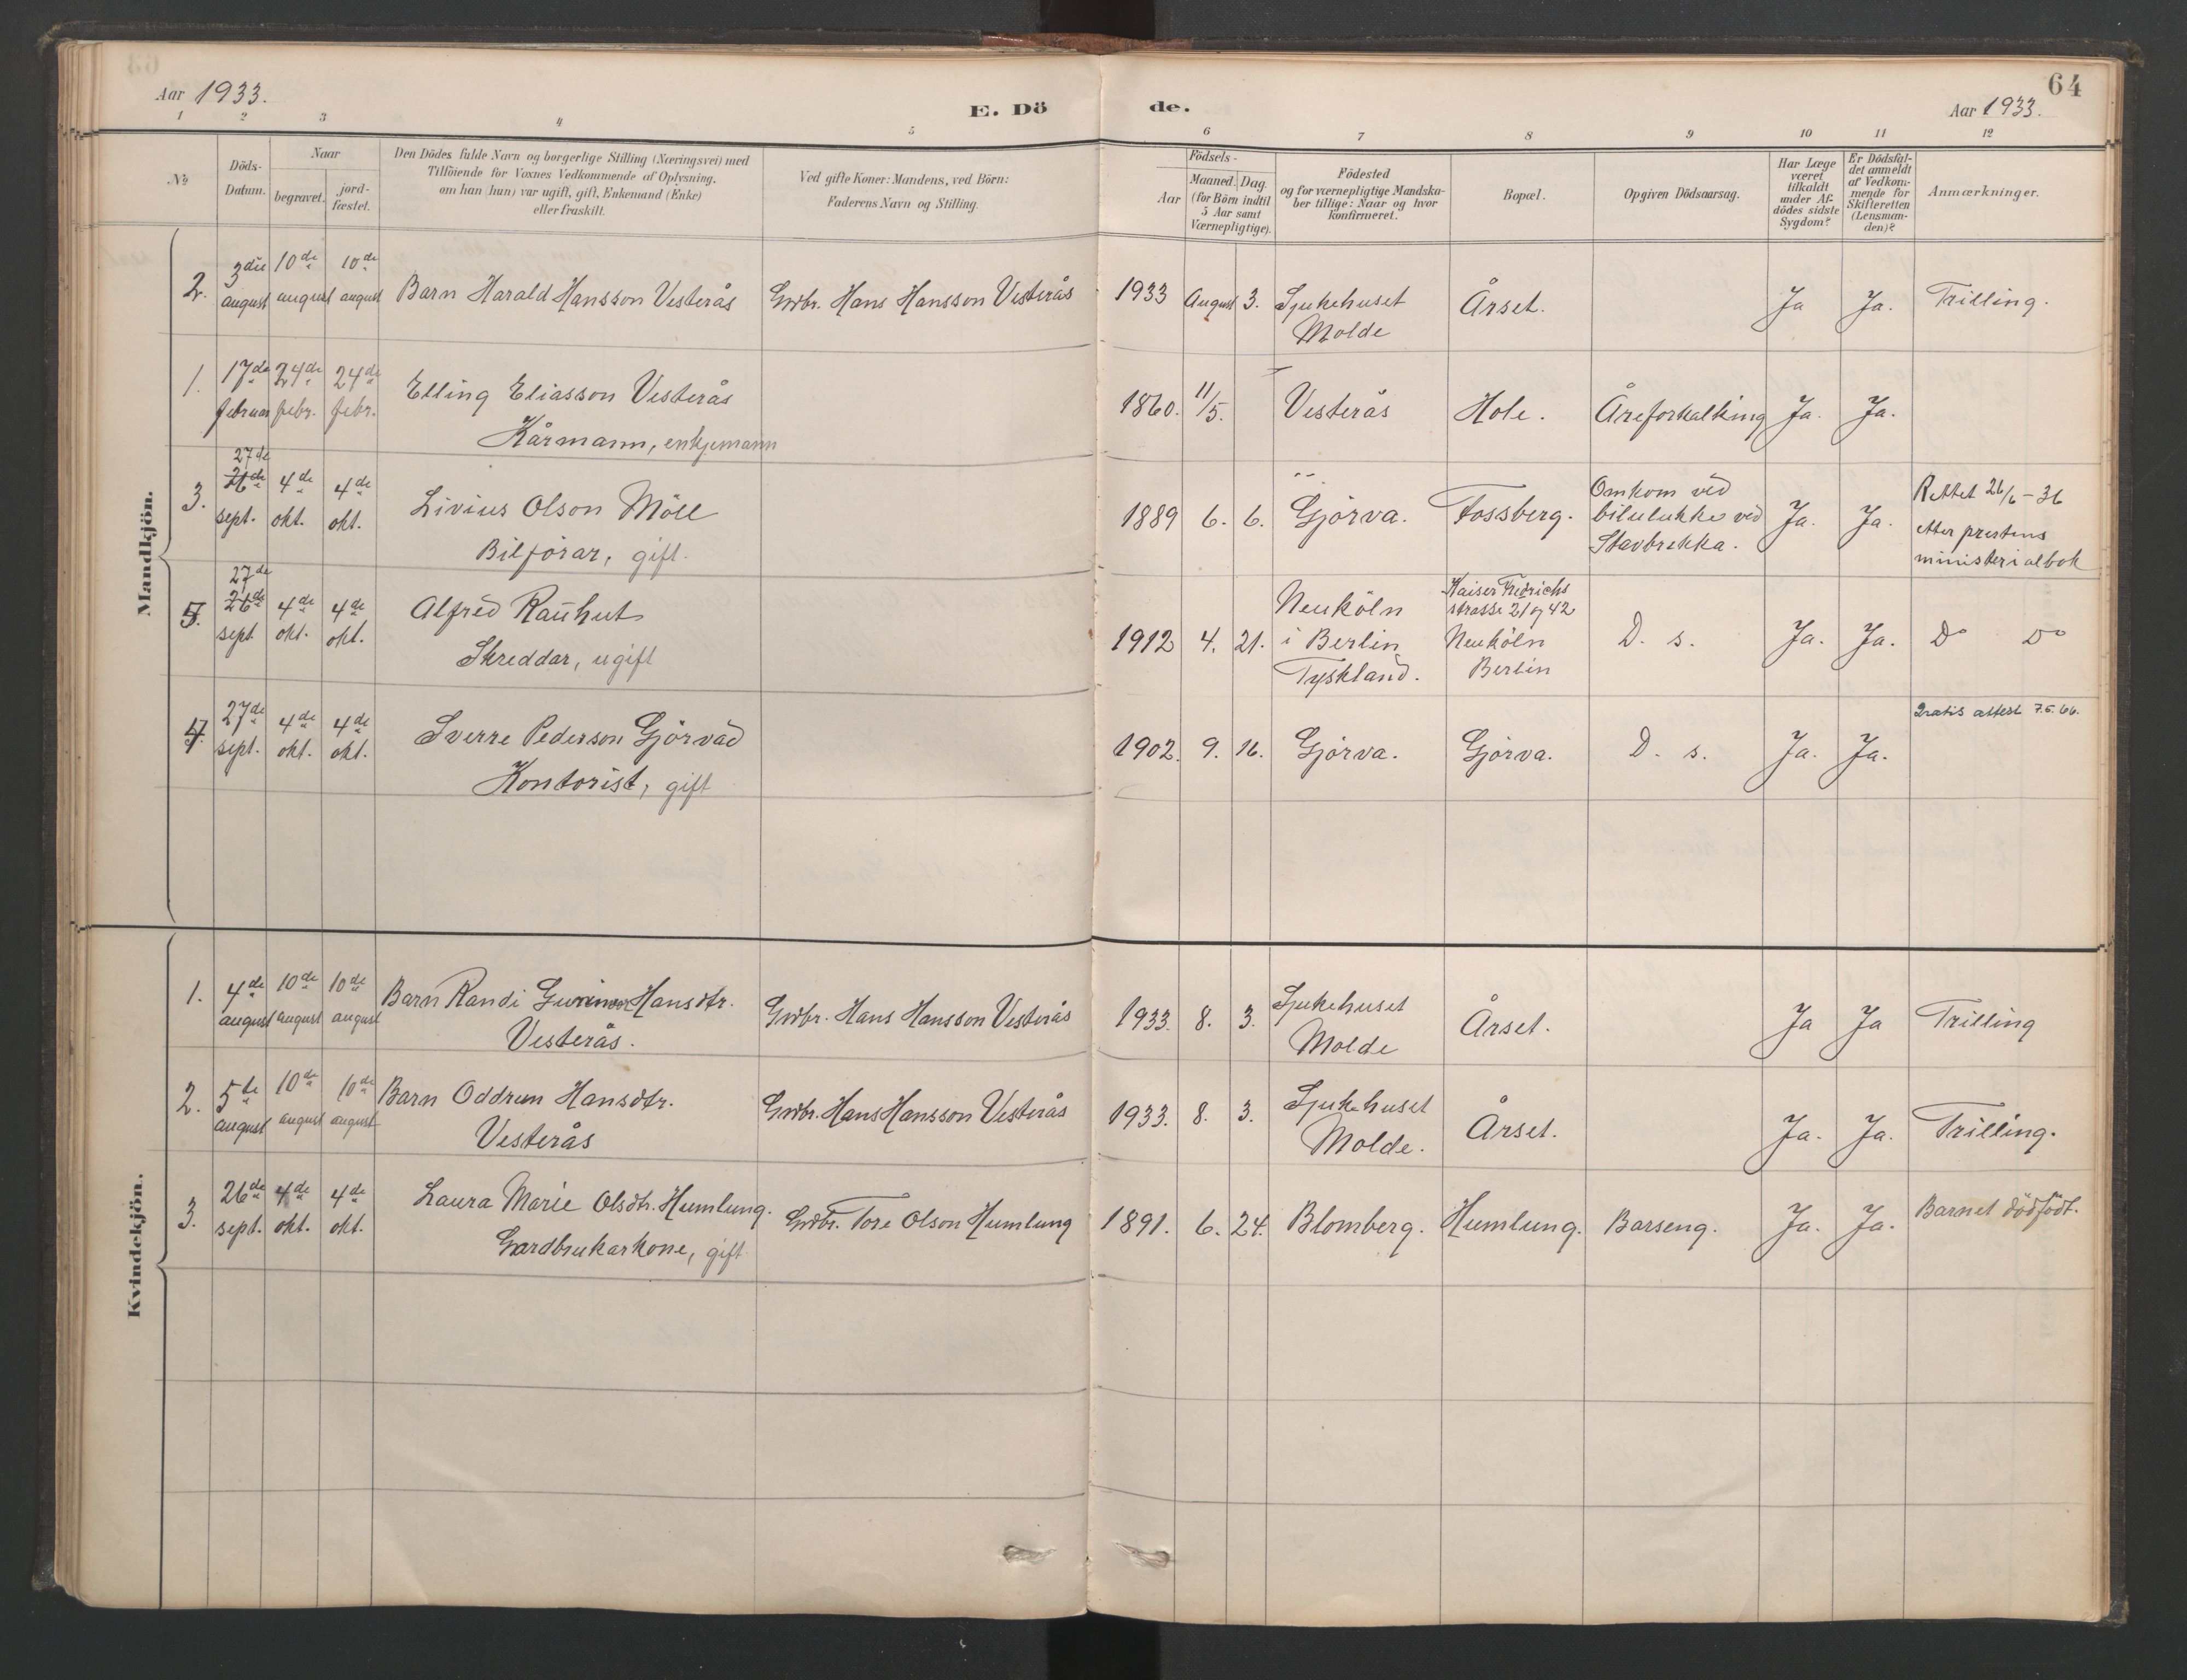 64
Aar 1933.
E. Dö de.
Aar 1933.
1 2 3 4 5 6 7 8 9 10 11 12
No
Döds-
Datum.
Naar
begravet.
jord-
fæstet.
Den Dödes fulde Navn og borgerlige Stilling (Næringsvei) med
Tilföiende for Voxnes Vedkommende af Oplysning,
om han (hun) var ugift, gift, Enkemand (Enke)
eller fraskilt.
Ved gifte Koner: Mandens, ved Börn:
Faderens Navn og Stilling.
Födsels-
Aar
Maaned. Dag.
(for Börn indtil
5 Aar samt
Værnepligtige).
Födested
og for værnepligtige Mandska-
ber tillige: Naar og hvor
konfirmeret.
Bopæl.
Opgiven Dödsaarsag.
Har Læge
været
tilkaldt
under Af-
dödes sidste
Sygdom?
Er Dödsfal-
det anmeldt
af Vedkom-
mende for
Skifteretten
(Lensman-
den)?
Anmærkninger.
Mandkjön.
2. 3die august 10de august 10de august Barn Harald Hansson Vesterås Grdbr. Hans Hansson Vesterås 1933 August 3. Sjukehuset Molde Årset. Ja Ja. Trilling.
1. 17de februar 24de febr. 24de febr. Elling Eliasson Vesterås
Kårmann, enkjemann 1860. 11/5. Vesterås Hole. Åreforkalking Ja. Ja.
3. 27de 26de sept. 4de okt. 4de okt. Livius Olson Möll
Bilförar, gift. 1889 6. 6. Gjörva. Fossberg. Omkom ved
bilulukke ved
Stavbrekka. Ja. Ja. Rettet 26/6-36
etter prestens
ministerialbok
5. 27de 26de sept 4de okt. 4de okt. Alfred Rauhut
Skreddar, ugift 1912 4. 21. Neuköln
i Berlin
Tyskland. Kaiser Fredrichs
strasse 21 og 42
Neuköln
Berlin D. s. Ja. Ja. Do Do
4. 27de sept. 4de okt. 4de okt. Sverre Pederson Gjörvad
Kontorist, gift 1902. 9. 16. Gjörva. Gjörva. D. s. Ja. Ja. Gratis attest 7.6.66.
Kvindekjön.
1. 4de august 10de august 10de august Barn Randi Hansdtr.
Vesterås. Grdbr. Hans Hansson Vesterås 1933. 8. 3. Sjukehuset
Molde Årset. Ja Ja Trilling
2. 5te august 10de august 10de august Barn Oddrun Hansdtr.
Vesterås Grdbr. Hans Hansson Vesterås 1933. 8. 3. Sjukehuset
Molde. Årset. Ja. Ja. Trilling.
3. 26de sept. 4de okt. 4de okt. Laura Marie Olsdtr. Humlung.
Gardbrukarkone, gift Grdbr. Tore Olson Humlung 1891. 6. 24. Blomberg. Humlung. Barseng. Ja. Ja. Barnet dödfödt.